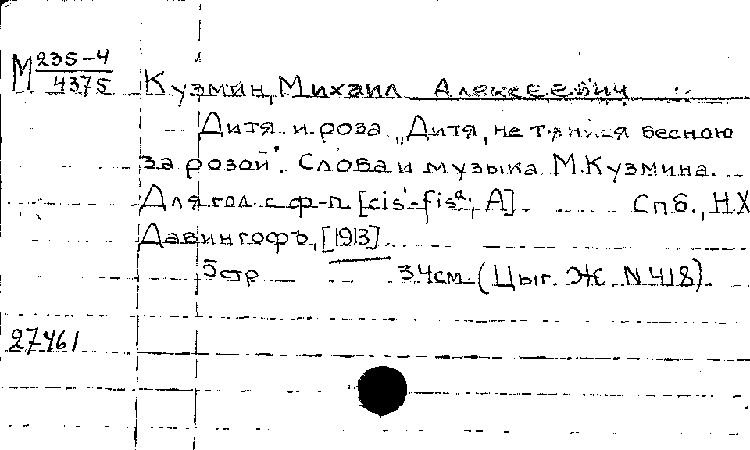 М 235-4
4375
Кузмин, Михаил Алексеевич
Дитя и роза „Дитя, не тянися весною
за розой". Слова и музыка М. Кузмина.
Для гол. с ф-п. [cis'-fis², A]. Спб., Н.Х.
Давингофъ, [1913].
5 стр 34 см. (Цыг. Ж. N 418).
27461